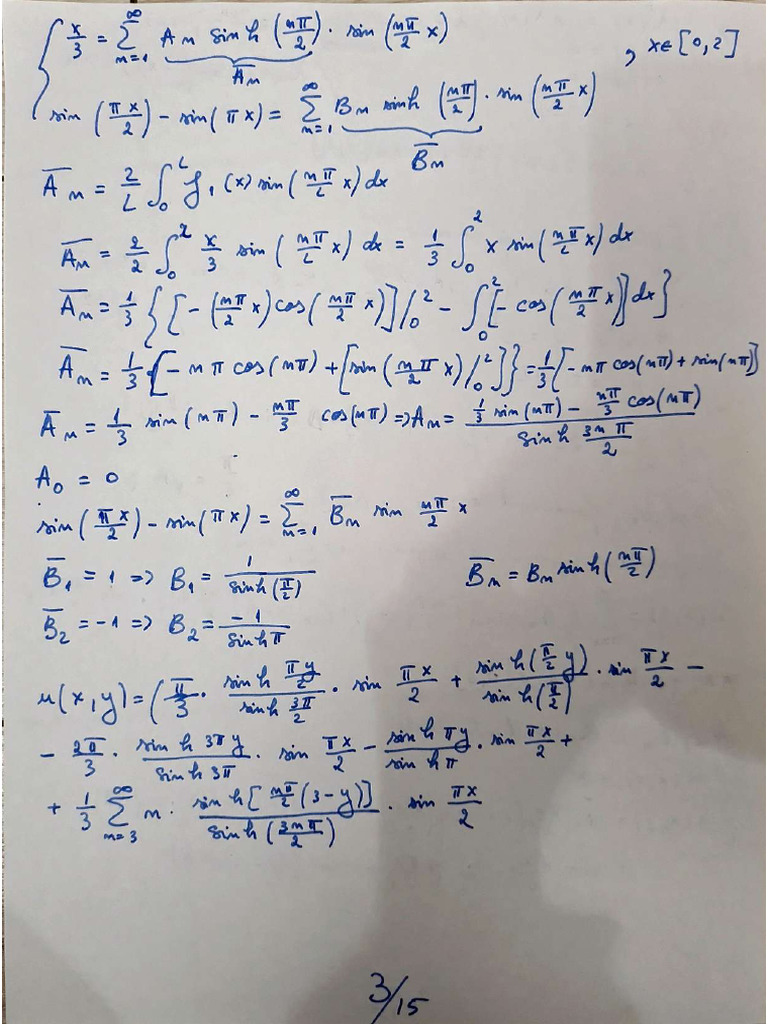 { x/3 = ∑_{n=1}^{∞} A_n sinh (nπ/2) · sin (nπ/2 x) , x∈[0,2]
A̅_n
sin (πx/2) - sin(πx) = ∑_{n=1}^{∞} B_n sinh (nπ/2) · sin (nπ/2 x)
B̅_n
A̅_n = 2/L ∫_0^L f_1(x) sin (nπ/L x) dx
A̅_n = 2/2 ∫_0^2 x/3 sin (nπ/L x) dx = 1/3 ∫_0^2 x sin(nπ/L x) dx
A̅_n = 1/3 { [-(nπ/2 x) cos(nπ/2 x)] /_0^2 - ∫_0^2 [-cos(nπ/2 x)] dx }
A̅_n = 1/3 · {-nπ cos(nπ) + [sin(nπ/2 x) /_0^2 ]} = 1/3 [-nπ cos(nπ) + sin(nπ)]
A̅_n = 1/3 sin(nπ) - nπ/3 cos(nπ) => A_n = (1/3 sin(nπ) - nπ/3 cos(nπ)) / (sinh 3nπ/2)
A_0 = 0
sin(πx/2) - sin(πx) = ∑_{n=1}^{∞} B̅_n sin nπ/2 x
B̅_1 = 1 => B_1 = 1 / sinh(π/2) B̅_n = B_n sinh(nπ/2)
B̅_2 = -1 => B_2 = -1 / sinh π
u(x,y) = (π/3 · (sinh πy/2) / (sinh 3π/2) · sin πx/2 + sinh(π/2 y) / sinh(π/2) · sin πx/2 -
- 2π/3 · (sinh 3πy) / (sinh 3π) · sin πx/2 - (sinh πy) / (sinh π) · sin πx/2 +
+ 1/3 ∑_{n=3}^{∞} n · sinh[nπ/2 (3-y)] / sinh(3nπ/2) · sin πx/2
3/15